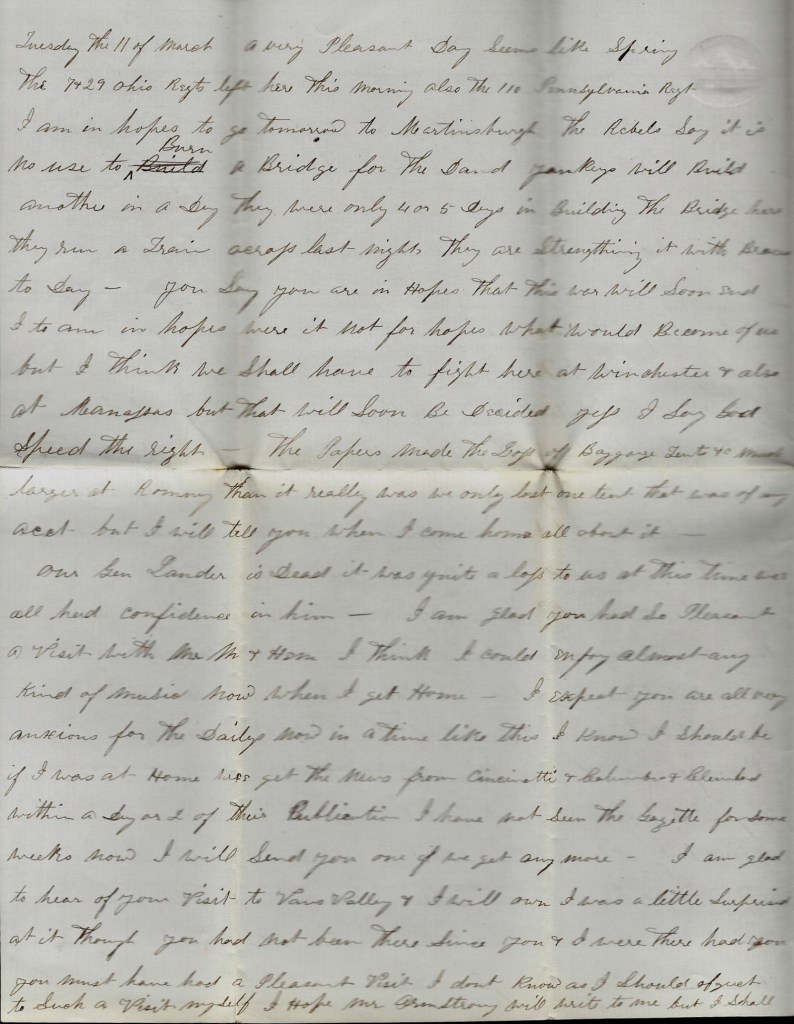 Tuesday the 11 of March a very Pleasant Day Seems like Spring
The 7 & 29 Ohio Regts left here This Morning also the 110 Pennsylvania Regt
I am in hopes to go tomorrow to Martinsburgh The Rebels Say it is
Burn
no use to Build a Bridge for the Damd yankeys will Build
another in a Day They were only 4 or 5 Days in Building The Bridge here
they run a Train across last night They are Strengthing it with Braces
to Day – you Say you are in Hopes That this war will Soon End
I to am in hopes were it not for hopes what would Become of us
but I think we Shall have to fight here at Winchester & also
at Manassas but That will Soon Be Decided yess I Say God
Speed the right – The Papers made the Loss of Baggage Tents &c Much
larger at Romney than it really was we only lost one tent that was of any
acct but I will tell you when I come home all about it –
Our Gen Lander is Dead it was quite a loss to us at this time we
all had confidence in him – I am glad you had So Pleasant
a Visit with Me I think I could enjoy almost any
Kind of music now when I get Home – I expect you are all very
anxious for the Dailys now in a time like this I Know I Should be
if I was at Home get the News from Cincinetti & Columbus & Cleveland
within a Day or 2 of their Publication I have not Seen the Gazette for some
weeks now I will Send you one if we get any more – I am glad
to hear of your Visit to Vans Valley & I will own I was a little Surprised
at it Though you had not been there Since you & I were there had you
you must have had a Pleasant Visit I dont Know as I Should object
to Such a Visit myself I Hope Mr Armstrong will write to me but I Shall